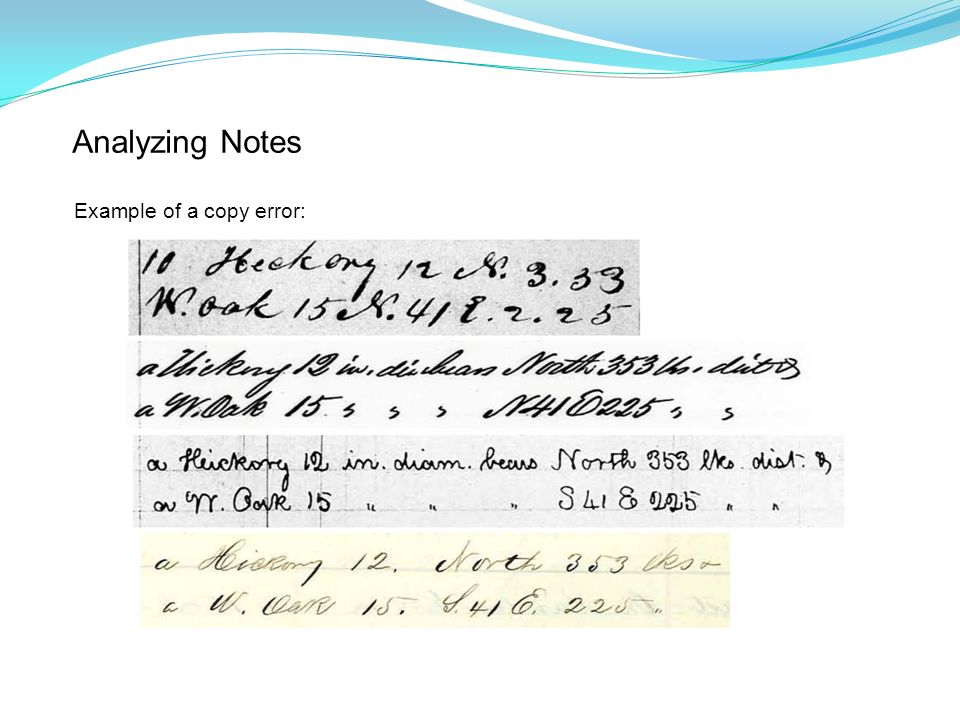 Analyzing Notes
Example of a copy error:
10 Hickory 12 N. 3.53
W. oak 15 N. 41 E. 2.25
a Hickory 12 in. din bears North 353 lks. dist &
a W. Oak 15 " " " N41E225 " "
a Heickory 12 in. diam. bears North 353 lks. dist. &
a W. Oak 15 " " " S 41 E 225 " "
a Hickory 12. North 353 lks &
a W. Oak 15. S. 41 E. 225 "